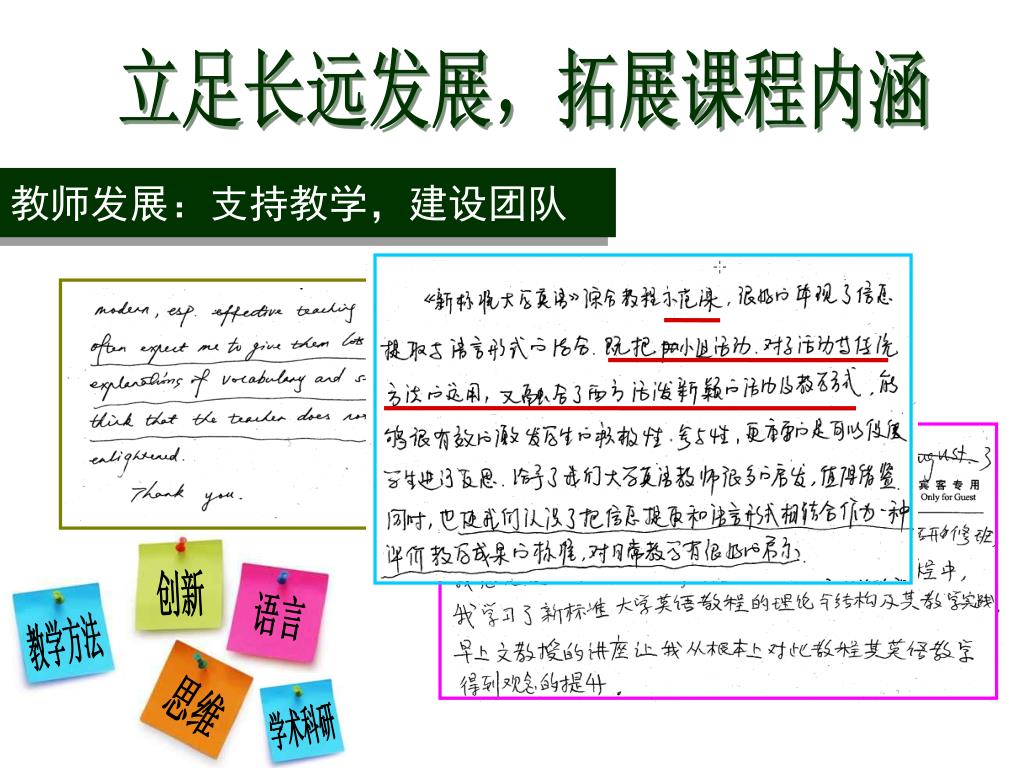 立足长远发展，拓展课程内涵
教师发展：支持教学，建设团队
modern, esp. effective teaching
often expect me to give them lots
explanations of vocabulary and s-
think that the teacher does not
enlightened.
Thank you.
《新标准大学英语》综合教程示范课，很好的体现了信息
提取与语言形式的结合。既把小组活动、对子活动与传统
方法的运用，又融合了西方活泼新颖的活动及教学方式，能
够很有效的激发学生的积极性、参与性，更重要的是可以促使
学生进行反思。给予了我们大学英语教师很多的启发，值得借鉴。
同时，也使我们认识了把信息提取和语言形式相结合作为一种
评价教学成果的标准，对日常教学有很好的启示。
August. 3
宾客专用
Only for Guest
研修班，
程中，
我学习了新标准大学英语教程的理论个结构及其教学实践，
早上文教授的讲座让我从根本上对此教程其英语教学
得到观念的提升。
创新
语言
教学方法
思维
学术科研